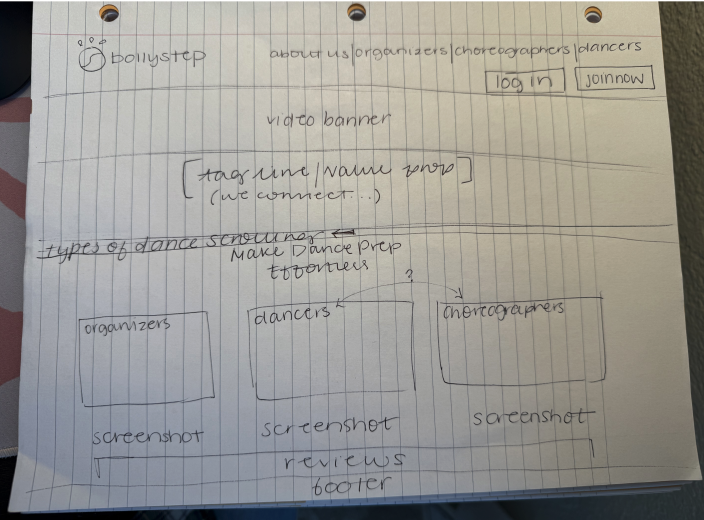 bollystep
about us|organizers|choreographers|dancers
log in
join now
video banner
[tag line/Name
(we connect...)
types of dance scrolling ←
Make Dance Prep
Effortless
?
organizers
dancers
choreographers
screenshot
screenshot
screenshot
reviews
footer